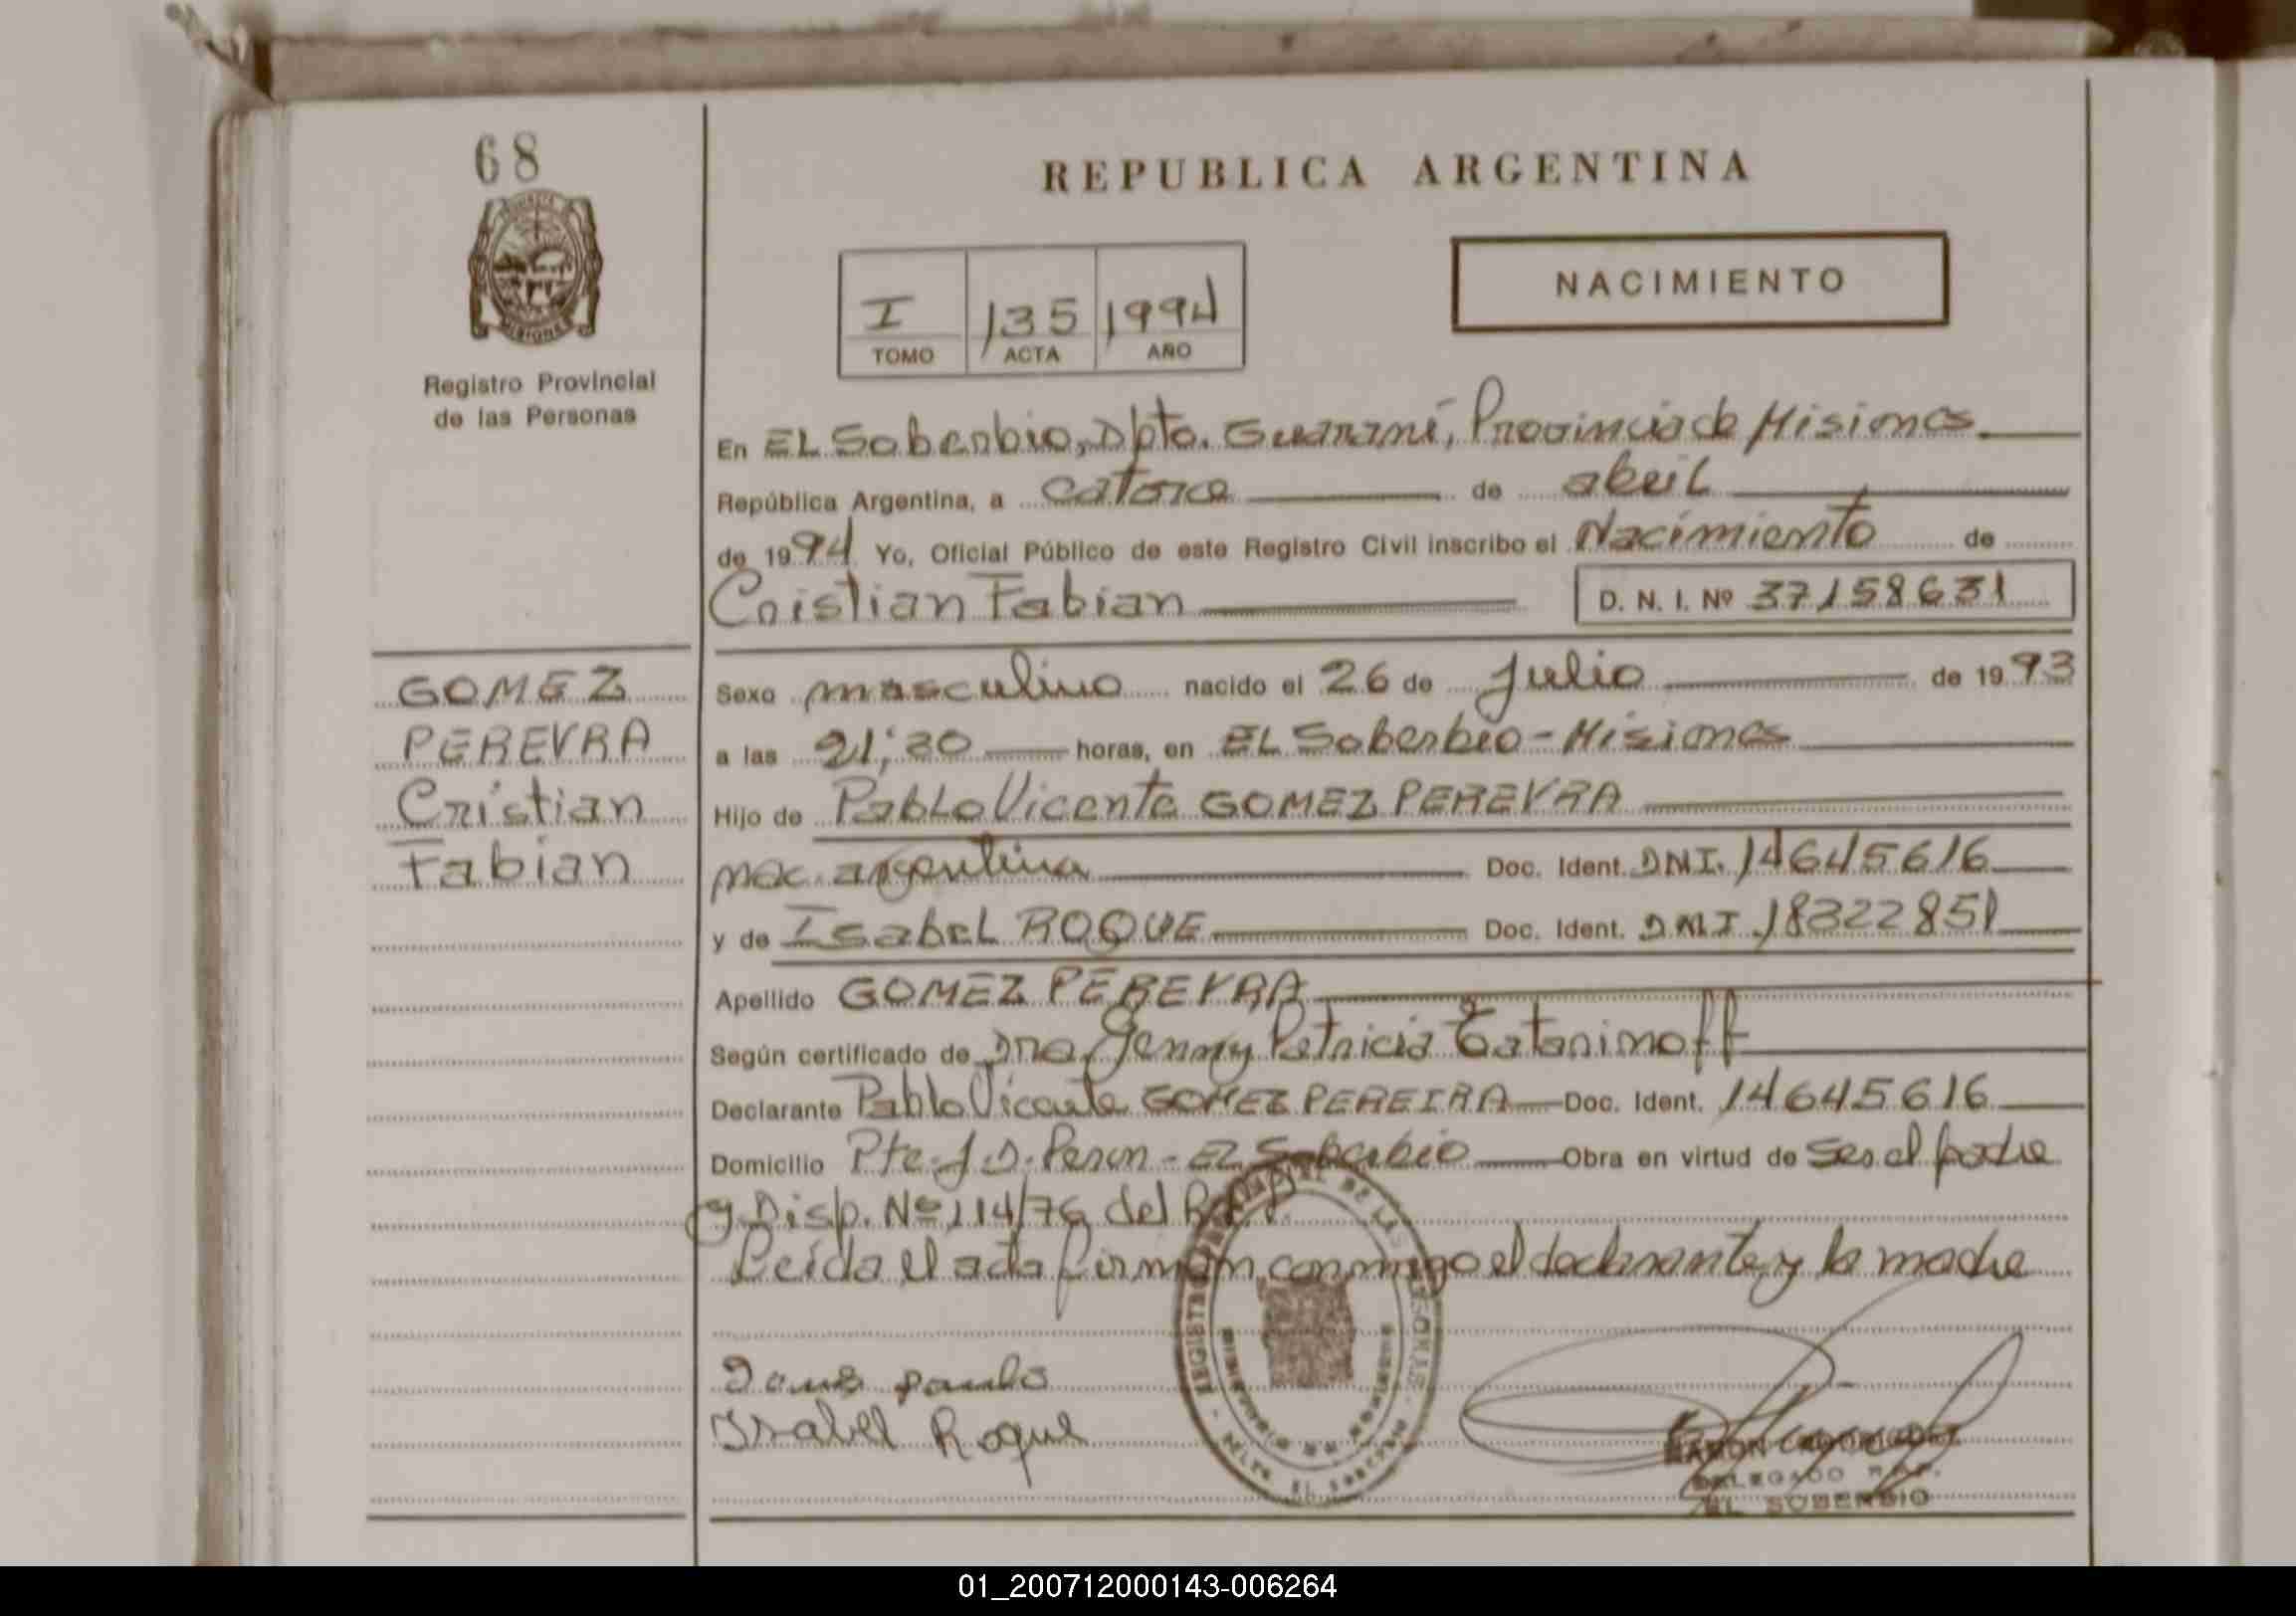 68
REPUBLICA ARGENTINA
NACIMIENTO
I 135 1994
TOMO ACTA AÑO
Registro Provincial
de las Personas
En EL Soberbio, Dpto. Guaraní, Provincia de Misiones
República Argentina, a catorce de abril
de 1994 Yo, Oficial Público de este Registro Civil inscribo el Nacimiento de
Cristian Fabian D. N. I. Nº 37158631
GOMEZ
PEREYRA
Cristian
Fabian
Sexo masculino nacido el 26 de Julio de 1993
a las 21;30 horas, en EL Soberbio - Misiones
Hijo de Pablo Vicente GOMEZ PEREYRA
nac. argentina Doc. Ident. DNI. 14645616
y de Isabel ROQUE Doc. Ident. DNI. 18322851
Apellido GOMEZ PEREYRA
Según certificado de Dra. Jenny Patricia
Declarante Pablo Vicente GOMEZ PEREIRA Doc. Ident. 14645616
Domicilio Pte. J. D. Peron - EL Soberbio Obra en virtud de ser el padre
y Disp. Nº 114/76 del R.P.P.
Leída el acta firman conmigo el declarante y la madre
Isabel Roque
DELEGADO R.P.P.
EL SOBERBIO
01_200712000143-006264